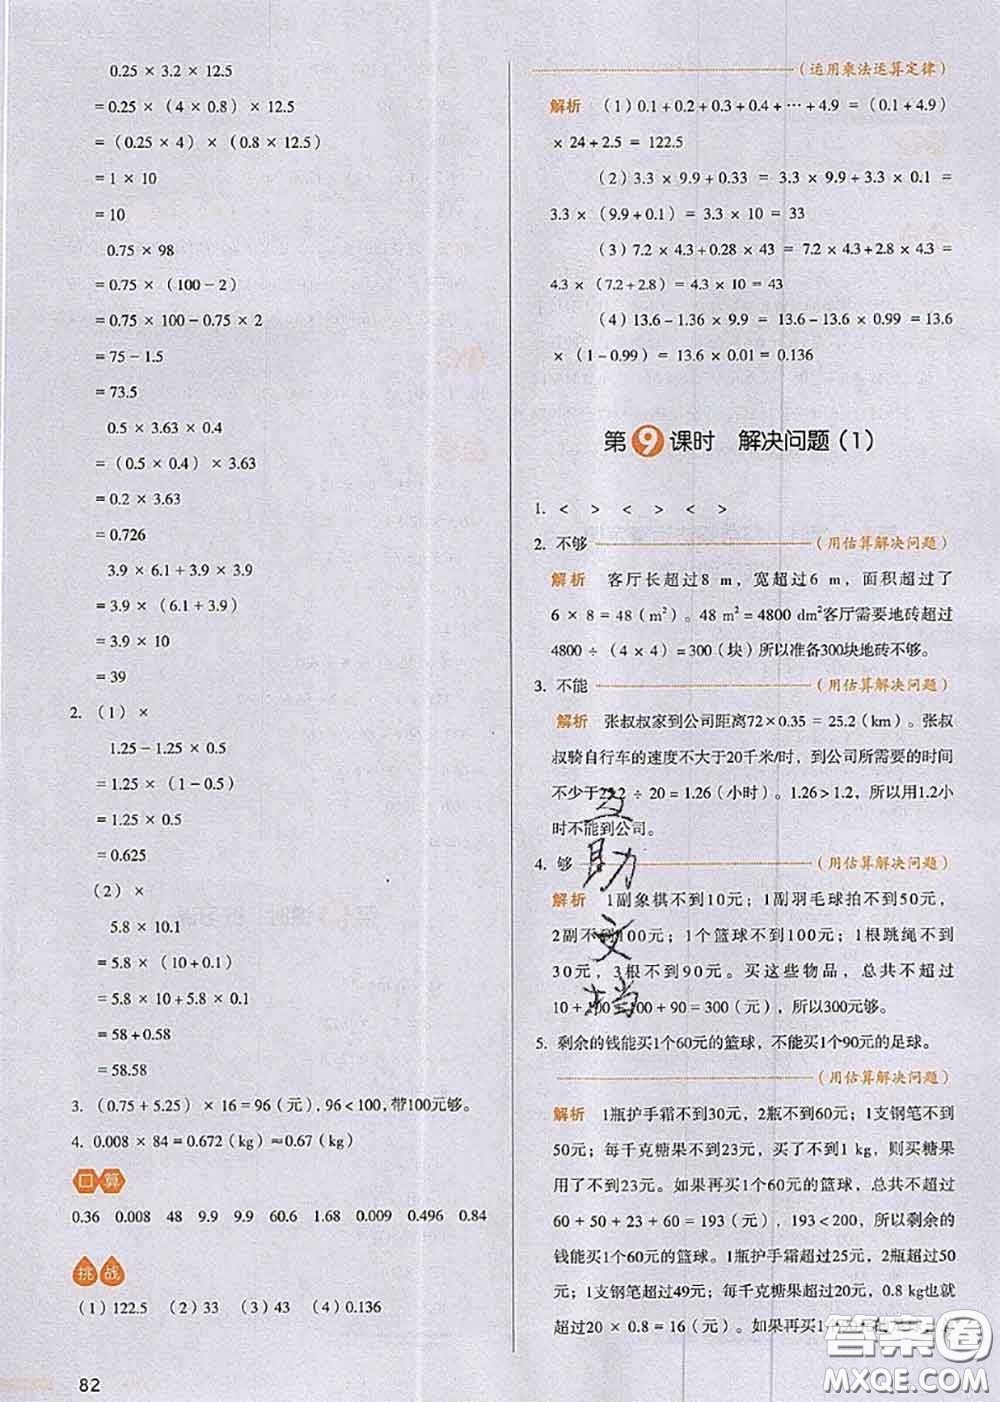 0.25 × 3.2 × 12.5
= 0.25 ×（4 × 0.8）× 12.5
=（0.25 × 4）×（0.8 × 12.5）
= 1 × 10
= 10
0.75 × 98
= 0.75 ×（100 - 2）
= 0.75 × 100 - 0.75 × 2
= 75 - 1.5
= 73.5
0.5 × 3.63 × 0.4
=（0.5 × 0.4）× 3.63
= 0.2 × 3.63
= 0.726
3.9 × 6.1 + 3.9 × 3.9
= 3.9 ×（6.1 + 3.9）
= 3.9 × 10
= 39
2.（1）×
1.25 - 1.25 × 0.5
= 1.25 ×（1 - 0.5）
= 1.25 × 0.5
= 0.625
（2）×
5.8 × 10.1
= 5.8 ×（10 + 0.1）
= 5.8 × 10 + 5.8 × 0.1
= 58 + 0.58
= 58.58
3.（0.75 + 5.25）× 16 = 96（元）, 96 < 100, 带100元够。
4. 0.008 × 84 = 0.672（kg）≈ 0.67（kg）
口算
0.36 0.008 48 9.9 9.9 60.6 1.68 0.009 0.496 0.84
挑战
（1）122.5 （2）33 （3）43 （4）0.136
82
（运用乘法运算定律）
解析 （1）0.1 + 0.2 + 0.3 + 0.4 + … + 4.9 =（0.1 + 4.9）
× 24 + 2.5 = 122.5
（2）3.3 × 9.9 + 0.33 = 3.3 × 9.9 + 3.3 × 0.1 =
3.3 ×（9.9 + 0.1）= 3.3 × 10 = 33
（3）7.2 × 4.3 + 0.28 × 43 = 7.2 × 4.3 + 2.8 × 4.3 =
4.3 ×（7.2 + 2.8）= 4.3 × 10 = 43
（4）13.6 - 1.36 × 9.9 = 13.6 - 13.6 × 0.99 = 13.6
×（1 - 0.99）= 13.6 × 0.01 = 0.136
第9课时 解决问题（1）
1. < > < > < >
2. 不够 （用估算解决问题）
解析 客厅长超过8 m，宽超过6 m，面积超过了
6 × 8 = 48（m²）。48 m² = 4800 dm²客厅需要地砖超过
4800 ÷（4 × 4）= 300（块）所以准备300块地砖不够。
3. 不能 （用估算解决问题）
解析 张叔叔家到公司距离72 × 0.35 = 25.2（km）。张叔
叔骑自行车的速度不大于20千米/时，到公司所需要的时间
不少于25.2 ÷ 20 = 1.26（小时）。1.26 > 1.2，所以用1.2小
时不能到公司。
4. 够 （用估算解决问题）
解析 1副象棋不到10元；1副羽毛球拍不到50元，
2副不到100元；1个篮球不到100元；1根跳绳不到
30元，3根不到90元。买这些物品，总共不超过
10 + 100 + 100 + 90 = 300（元），所以300元够。
5. 剩余的钱能买1个60元的篮球，不能买1个90元的足球。
（用估算解决问题）
解析 1瓶护手霜不到30元，2瓶不到60元；1支钢笔不到
50元；每千克糖果不到23元，买了不到1 kg，则买糖果
用了不到23元。如果再买1个60元的篮球，总共不超过
60 + 50 + 23 + 60 = 193（元），193 < 200，所以剩余的
钱能买1个60元的篮球。1瓶护手霜超过25元，2瓶超过50
元；1支钢笔超过49元；每千克糖果超过20元，0.8 kg也就
超过20 × 0.8 = 16（元）。如果再买1个
互助文档
答案圈
MXQE.COM